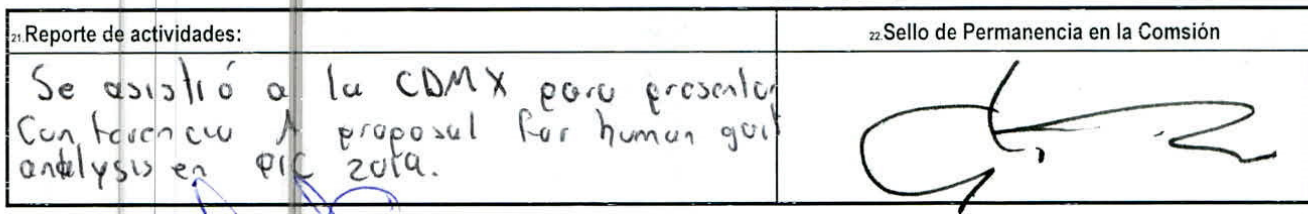 21.Reporte de actividades:
22.Sello de Permanencia en la Comsión
Se asistió a la CDMX para presentar
Conferencia A proposal for human gait
analysis en PIC 2019.